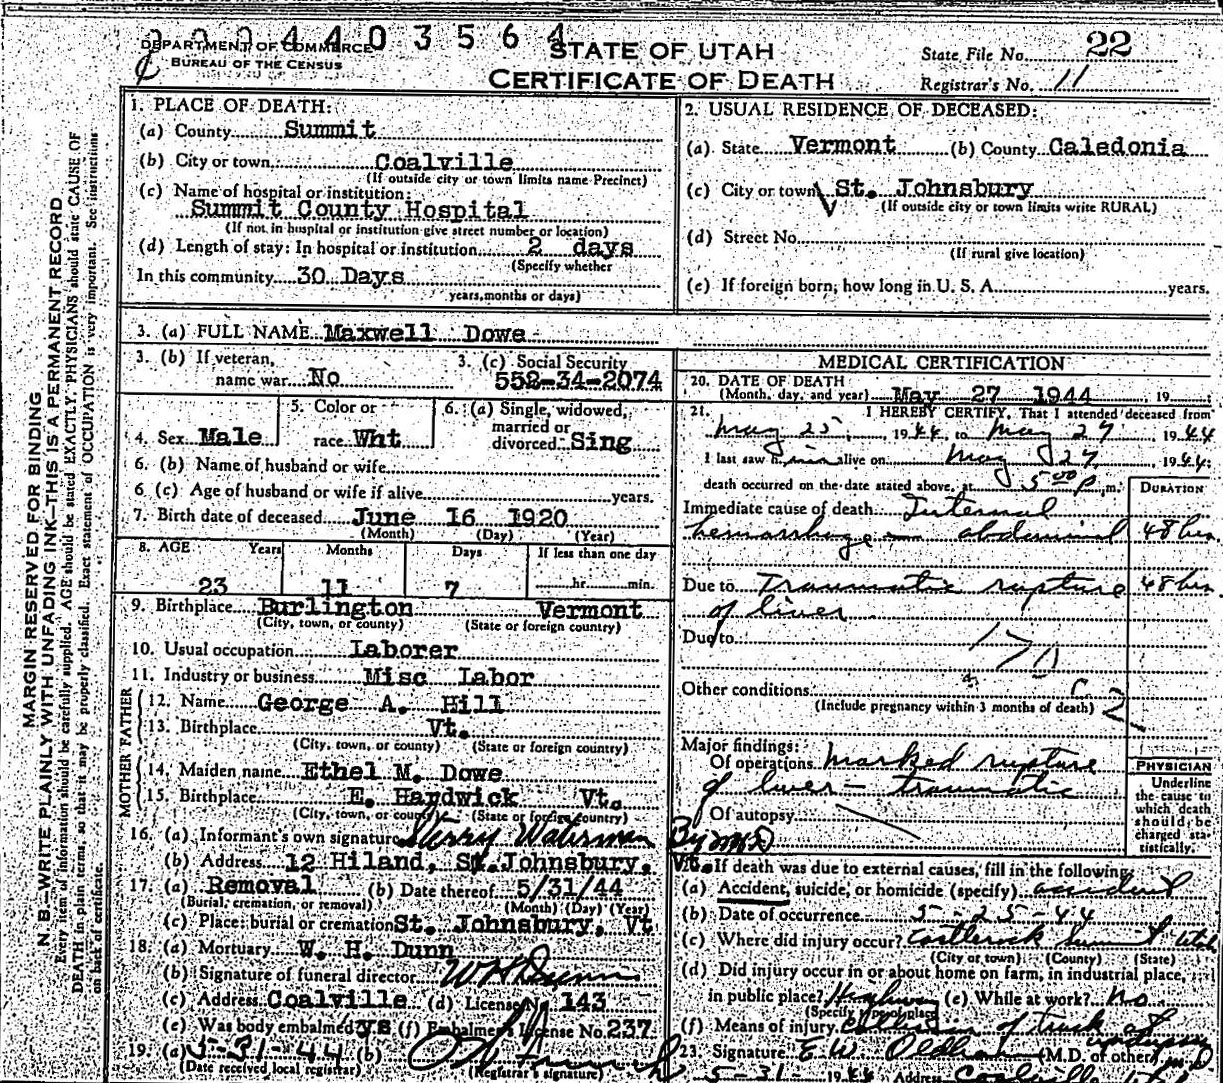 0 0 0 4 4 0 3 5 6 4
DEPARTMENT OF COMMERCE
BUREAU OF THE CENSUS
STATE OF UTAH
CERTIFICATE OF DEATH
State File No. 22
Registrar's No. 11
MARGIN RESERVED FOR BINDING
N. B.—WRITE PLAINLY WITH UNFADING INK—THIS IS A PERMANENT RECORD
Every item of information should be carefully supplied. AGE should be stated EXACTLY. PHYSICIANS should state CAUSE OF
DEATH in plain terms, so that it may be properly classified. Exact statement of OCCUPATION is very important. See instructions
on back of certificate.
1. PLACE OF DEATH:
(a) County Summit
(b) City or town Coalville
(If outside city or town limits name Precinct)
(c) Name of hospital or institution:
Summit County Hospital
(If not in hospital or institution give street number or location)
(d) Length of stay: In hospital or institution 2 days
(Specify whether
In this community 30 Days
years, months or days)
2. USUAL RESIDENCE OF DECEASED:
(a) State Vermont (b) County Caledonia
(c) City or town St. Johnsbury
(If outside city or town limits write RURAL)
(d) Street No.
(If rural give location)
(e) If foreign born, how long in U. S. A. years.
3. (a) FULL NAME Maxwell Dowe
3. (b) If veteran, name war No
3. (c) Social Security 552-34-2074
4. Sex Male
5. Color or race Wht
6. (a) Single, widowed, married or divorced Sing
6. (b) Name of husband or wife
6 (c) Age of husband or wife if alive years.
7. Birth date of deceased June 16 1920
(Month) (Day) (Year)
8. AGE Years Months Days If less than one day
23 11 7 hr. min.
9. Birthplace Burlington Vermont
(City, town, or county) (State or foreign country)
10. Usual occupation Laborer
11. Industry or business Misc Labor
FATHER
12. Name George A. Hill
13. Birthplace Vt.
(City, town, or county) (State or foreign country)
MOTHER
14. Maiden name Ethel M. Dowe
15. Birthplace E. Hardwick Vt.
(City, town, or county) (State or foreign country)
16. (a) Informant's own signature Sterry Waterman By MD
(b) Address 12 Hiland, St. Johnsbury, Vt.
17. (a) Removal (b) Date thereof 5/31/44
(Burial, cremation, or removal) (Month) (Day) (Year)
(c) Place: burial or cremation St. Johnsbury, Vt
18. (a) Mortuary W. H. Dunn
(b) Signature of funeral director W H Dunn
(c) Address Coalville (d) License No. 143
(e) Was body embalmed ys (f) Embalmer's License No. 237
19. (a) 5-31-44 (b)
(Date received local registrar) (Registrar's signature)
MEDICAL CERTIFICATION
20. DATE OF DEATH
(Month, day, and year) May 27 1944, 19
21. I HEREBY CERTIFY, That I attended deceased from
May 25, 1944, to May 27, 1944
I last saw him alive on May 27, 1944.
death occurred on the date stated above, at 5 00 P. m.
DURATION
Immediate cause of death Internal
hemorrhage — abdominal 48 hrs.
Due to Traumatic rupture 48 hrs
of liver
Due to
170
Other conditions
(Include pregnancy within 3 months of death)
Major findings:
Of operations Marked rupture
of liver — traumatic
Of autopsy
PHYSICIAN
Underline
the cause to
which death
should be
charged sta-
tistically.
If death was due to external causes, fill in the following:
(a) Accident, suicide, or homicide (specify) accident
(b) Date of occurrence 5-25-44
(c) Where did injury occur? Castlerock Summit Utah
(City or town) (County) (State)
(d) Did injury occur in or about home on farm, in industrial place,
in public place? Highway (e) While at work? No
(Specify type of place)
(f) Means of injury Collision of truck at underpass
23. Signature E. W. Oldham (M.D. of other) M D
5-31- 1944 Address Coalville Utah